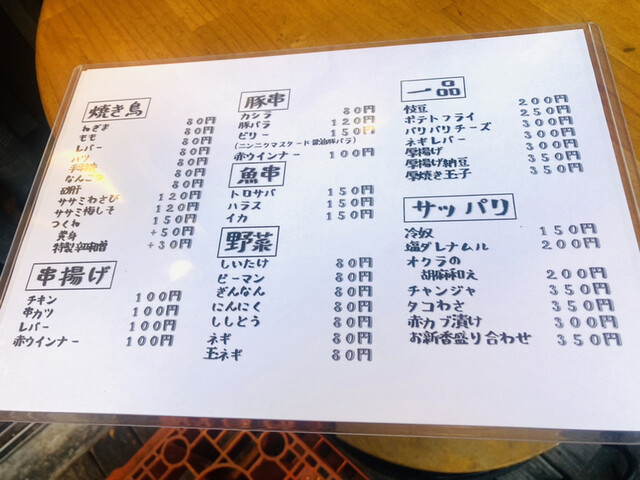 焼き鳥
ねぎま 80円
モモ 80円
レバー 80円
ハツ 80円
80円
なんこつ 80円
砂肝 80円
ササミわさび 120円
ササミ梅しそ 120円
つくね 150円
黄身 +50円
特製辛味噌 +30円
串揚げ
チキン 100円
串カツ 100円
レバー 100円
赤ウインナー 100円
豚串
カシラ 80円
豚バラ 120円
ビリー 150円
(ニンニクマスタード醤油豚バラ)
赤ウインナー 100円
魚串
トロサバ 150円
ハラス 150円
イカ 150円
野菜
しいたけ 80円
ピーマン 80円
ぎんなん 80円
にんにく 80円
ししとう 80円
ネギ 80円
玉ネギ 80円
一品
枝豆 200円
ポテトフライ 250円
パリパリチーズ 300円
ネギレバー 300円
厚揚げ 300円
厚揚げ納豆 350円
厚焼き玉子 350円
サッパリ
冷奴 150円
塩ダレナムル 200円
オクラの
胡麻和え 200円
チャンジャ 350円
タコわさ 350円
赤カブ漬け 300円
お新香盛り合わせ 350円